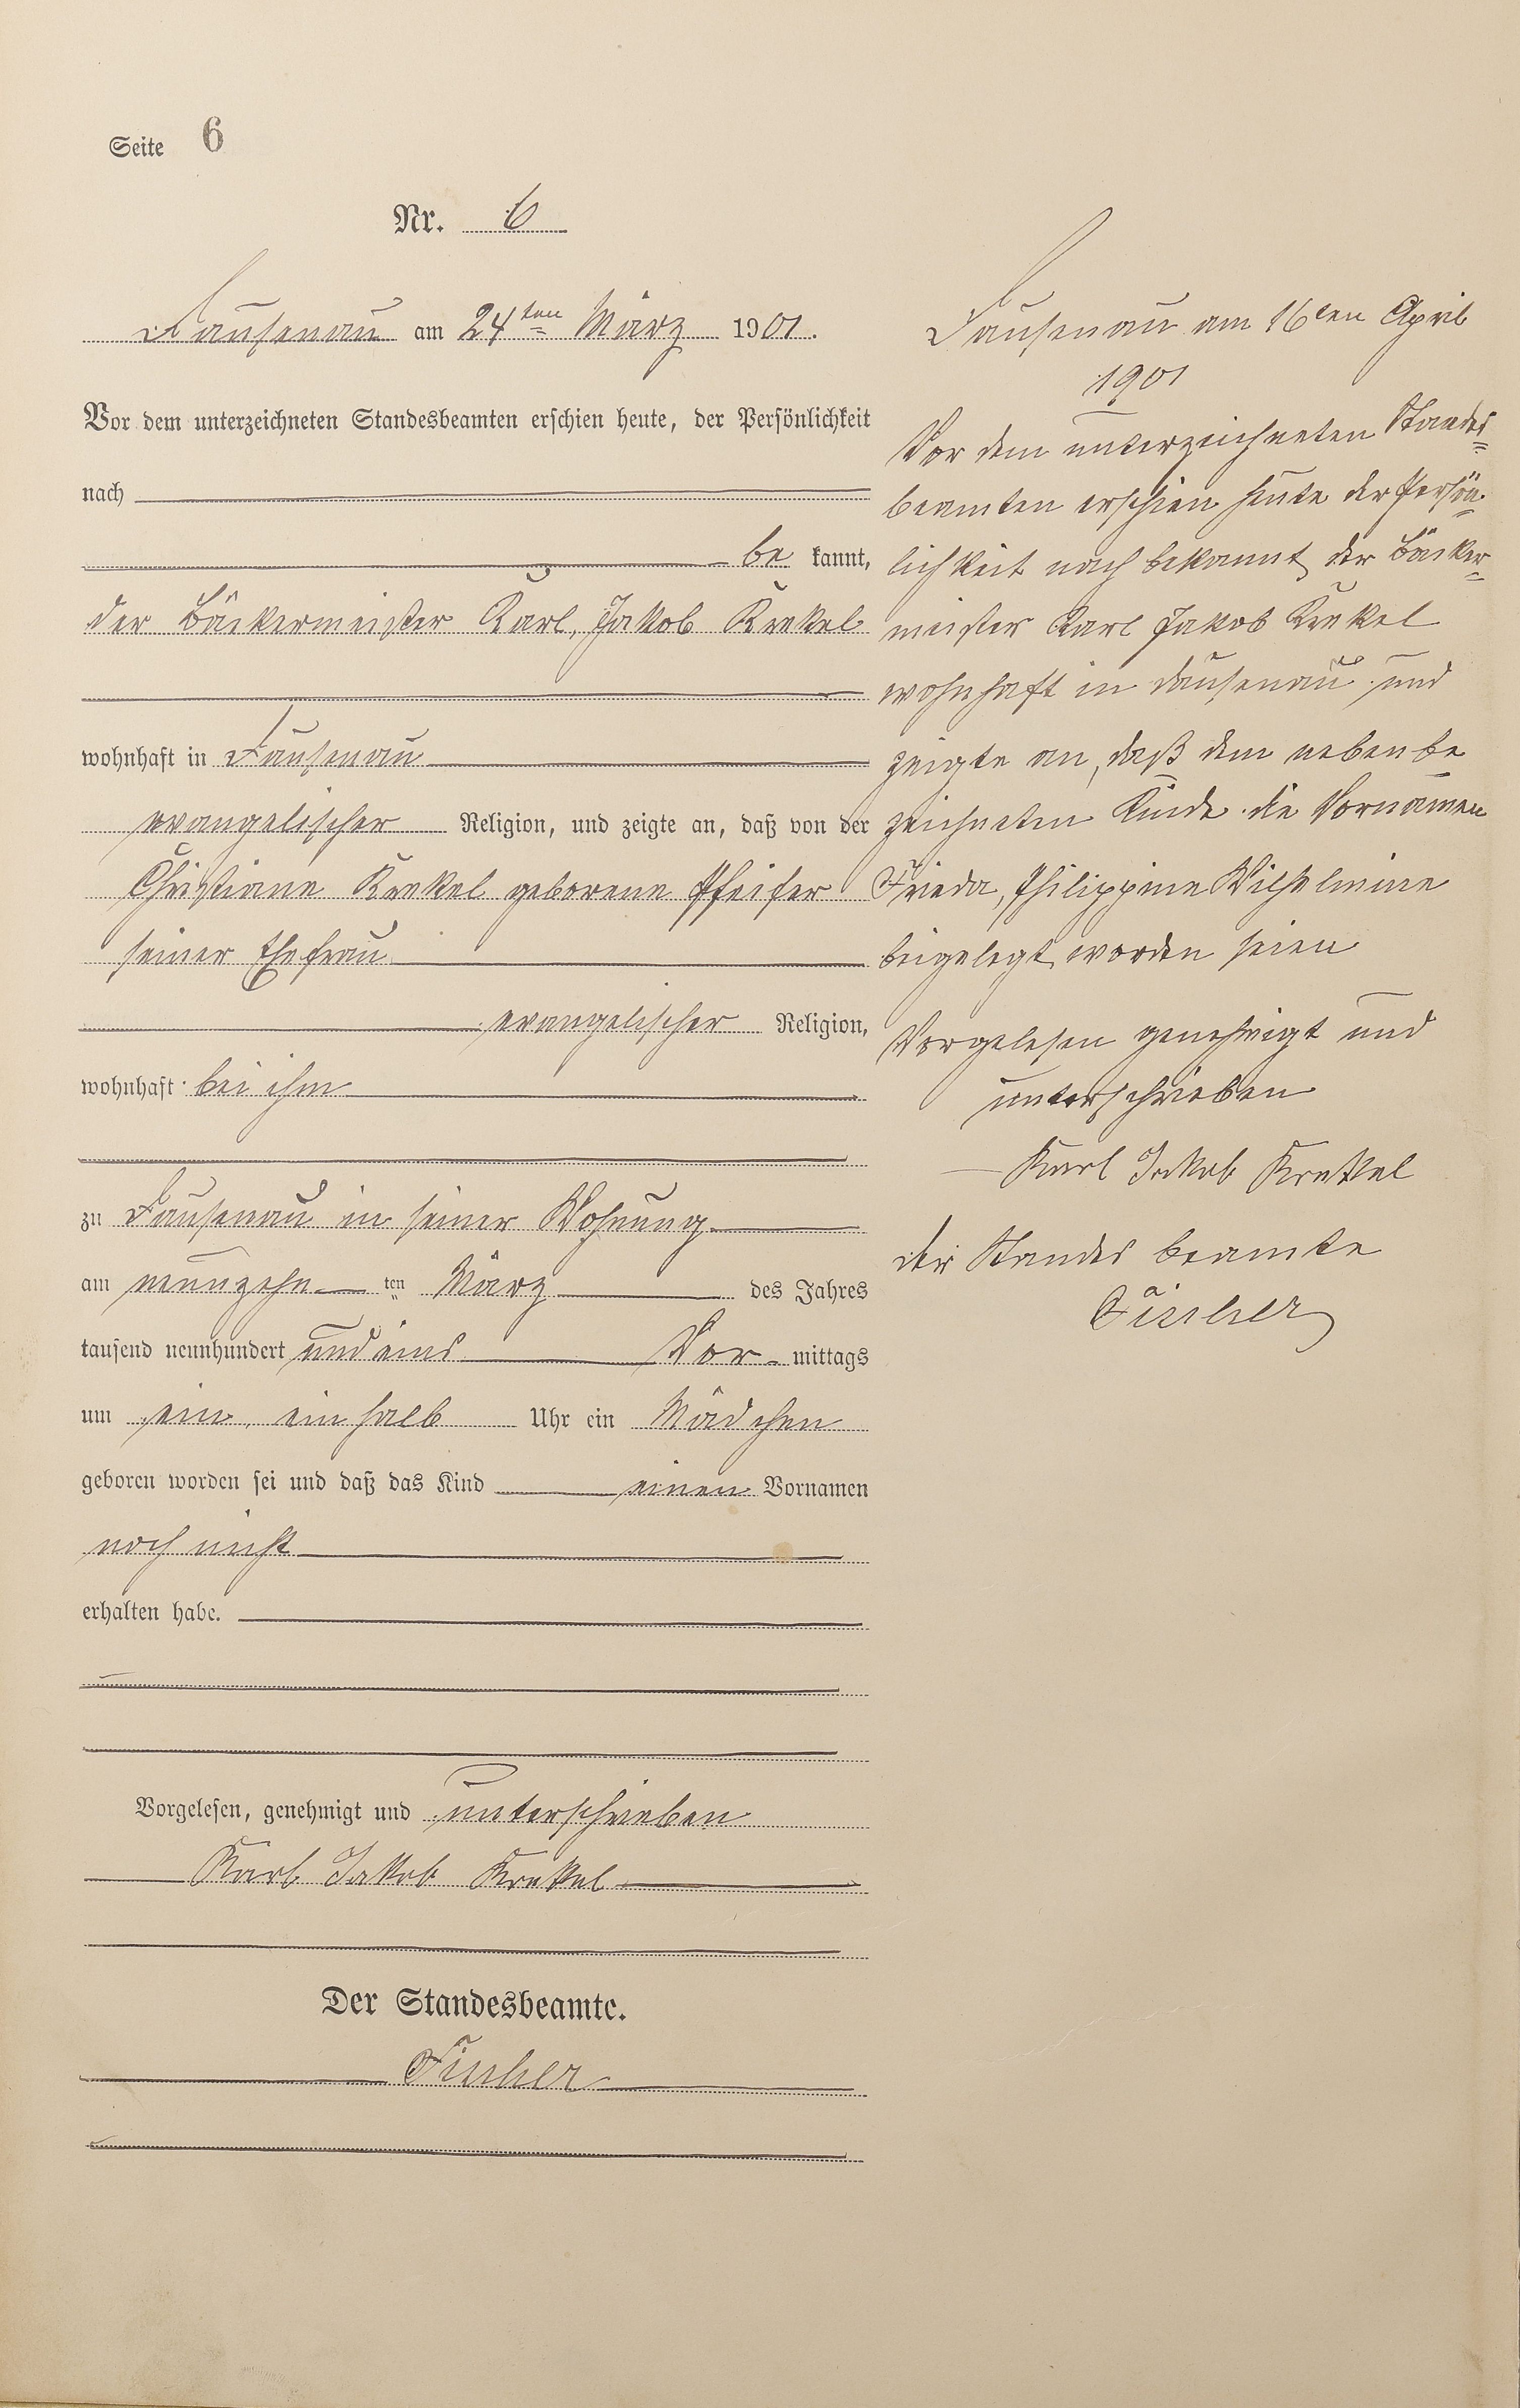 Seite 6
Nr. 6
Dausenau am 24ten März 1901.
Vor dem unterzeichneten Standesbeamten erschien heute, der Persönlichkeit
nach
be kannt,
der Bäckermeister Karl, Jakob Krekel
wohnhaft in Dausenau
evangelischer Religion, und zeigte an, daß von der
Christiane Krekel geborene Pfeifer
seiner Ehefrau
evangelischer Religion,
wohnhaft bei ihm
zu Dausenau in seiner Wohnung
am neunzehn ten März des Jahres
tausend neunhundert und eins Vor- mittags
um ein, ein halb Uhr ein Mädchen
geboren worden sei und daß das Kind einen Vornamen
noch nicht
erhalten habe.
Vorgelesen, genehmigt und unterschrieben
Karl Jakob Krekel
Der Standesbeamte.
Fischer
Dausenau am 16ten April
1901
Vor dem unterzeichneten Standes=
beamten erschien heute der Persön=
lichkeit nach bekannt, der Bäcker=
meister Karl Jakob Krekel
wohnhaft in Dausenau und
zeigte an, daß dem nebenbe
zeichneten Kinde die Vornamen
Frieda, Philippine Wilhelmine
beigelegt worden seien
Vorgelesen genehmigt und
unterschrieben
Karl Jakob Krekel
der Standes beamte
Fischer